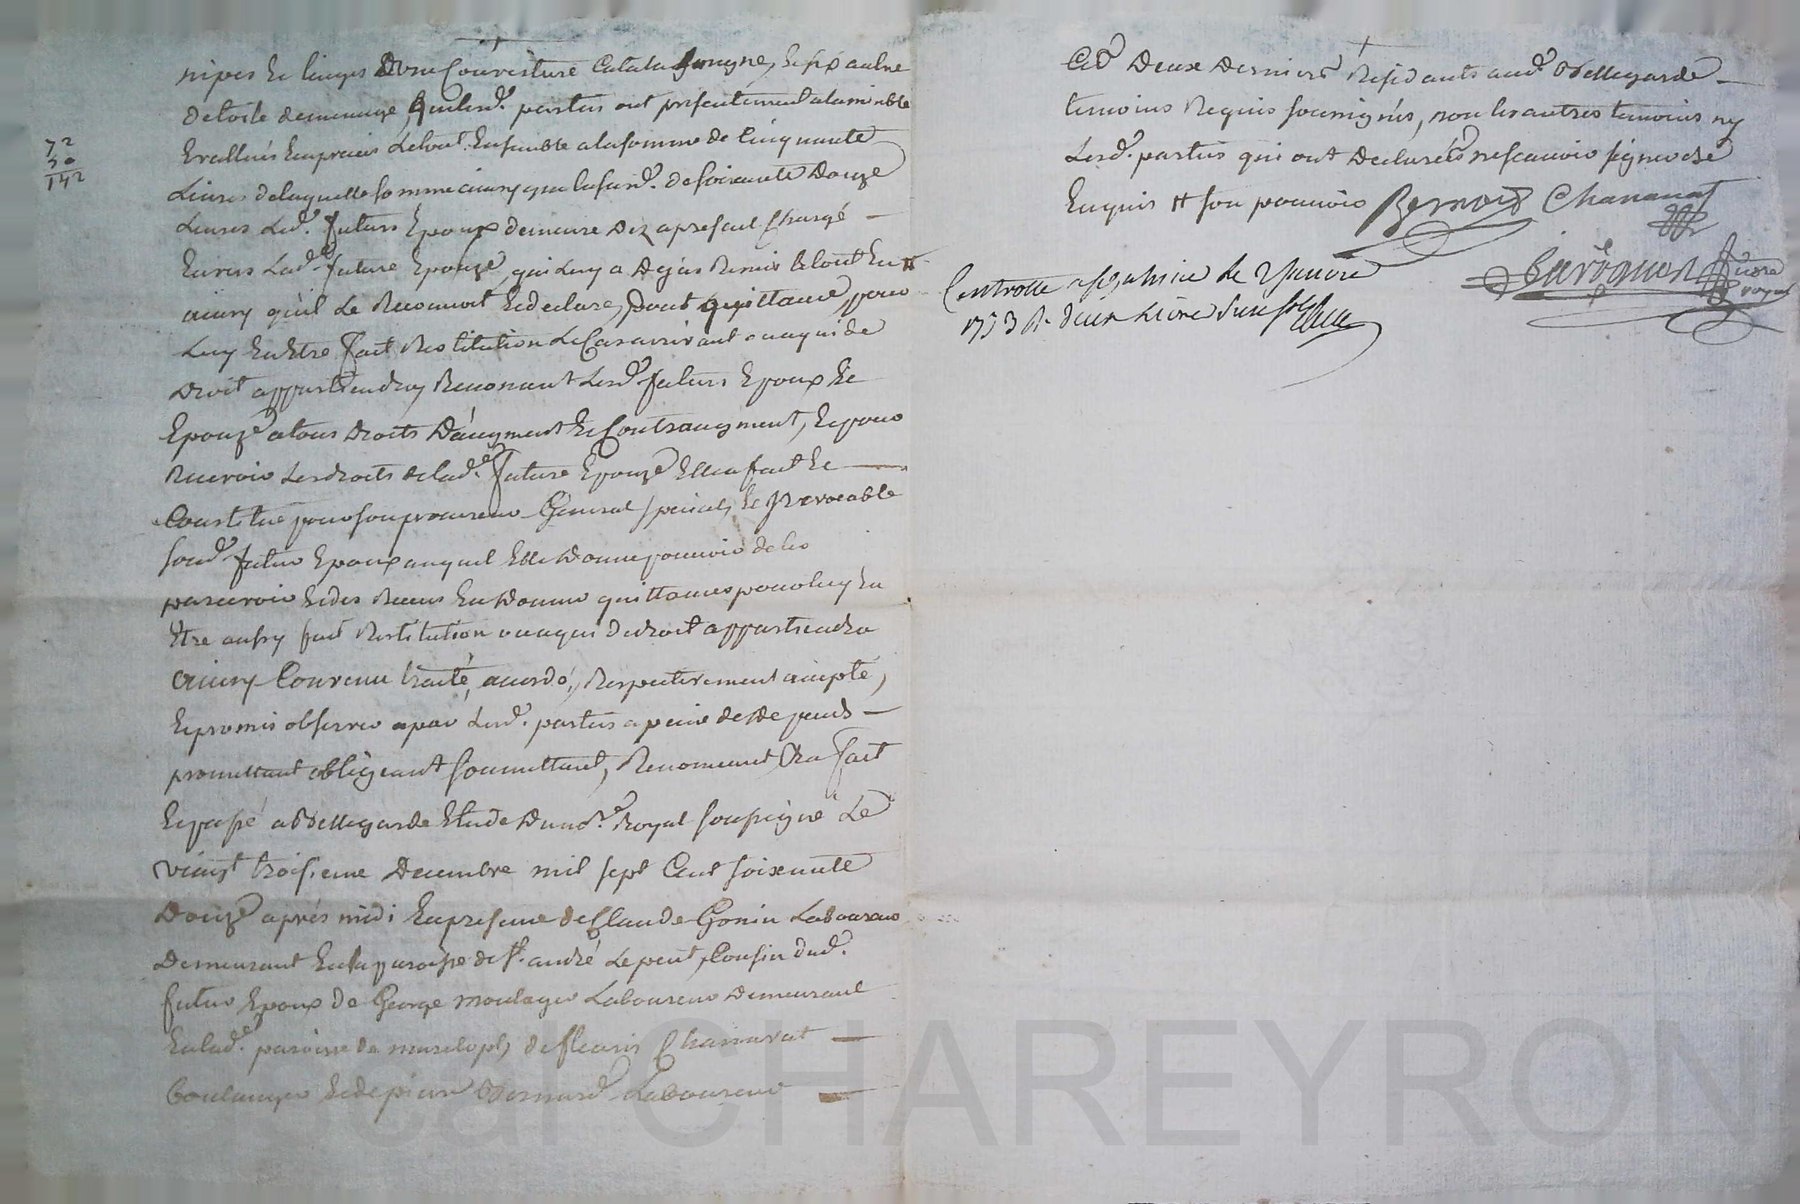 nipes et linges D'une Couverture Catalalougne, et six aulne
detoile demenage, que lesd.es parties ont presentement alamiable
Evallués Enprecis Letout Ensemble alasomme de Cinquante
Livres delaquelle somme ainsy que lasusd.e de soixante Douze
Livres Led.t futurs Epoux demeure Dez apresent Chargé —
Envers Lad.e future Epouze, qui Luy a Dejas Remis letout En #
ainsy qu'il Le Reconnoit Et declare, Dont quittance, pour
Luy En Etre fait Restitution Le Cas arrivant ou a qui de
Droit appartiendra, Renonçant Lesd.s futurs Epoux Et
Epouze atous Droits D'augment Et Contraugment, Et pour
Recevoir Les droits de lad.e future Epouze Elle a fait Et —
Constitué pour son procureur General special, Et Irrevocable
sond.t futur Epoux auquel Elle Donne pouvoir de les
parcevoir Et des Receus En Donner quittances pour luy En
Etre aussy fait Restitution ou a qui de droit appartiendra
ainsy Convenu traité, acordé, Respectivement accepté,
Et promis observer a par Lesd.s parties a peine de tte depends —
promettant obligeant soumettant, Renonceant, Cra fait
Et passé a Bellegarde Etude Dunore. Royal soussigné Le
vingt troisieme Decembre mil sept Cent soixante
Douze après midi En presence de Claude Gonin Laboureur
Demeurant En la paroisse de St. andré Le peut, Cousin dud.t
futur Epoux de George moulager Laboureur Demeurant
En lad.e paroisse de marclopt, de fleuris Chanavat —
boulanger Et de pierre Bernard Laboureur —
72
50
142
Ces Deux Derniers Residants aud.t Bellegarde —
temoins Requis soussignés, non les autres temoins ny
Lesd.s parties qui ont Declarés ne scavoir signer de ce
Enquis # son pouvoir Bernard Chanavat
Controllé a St galmier le 2 Janvier
1773 R. deux livre
notre
royal